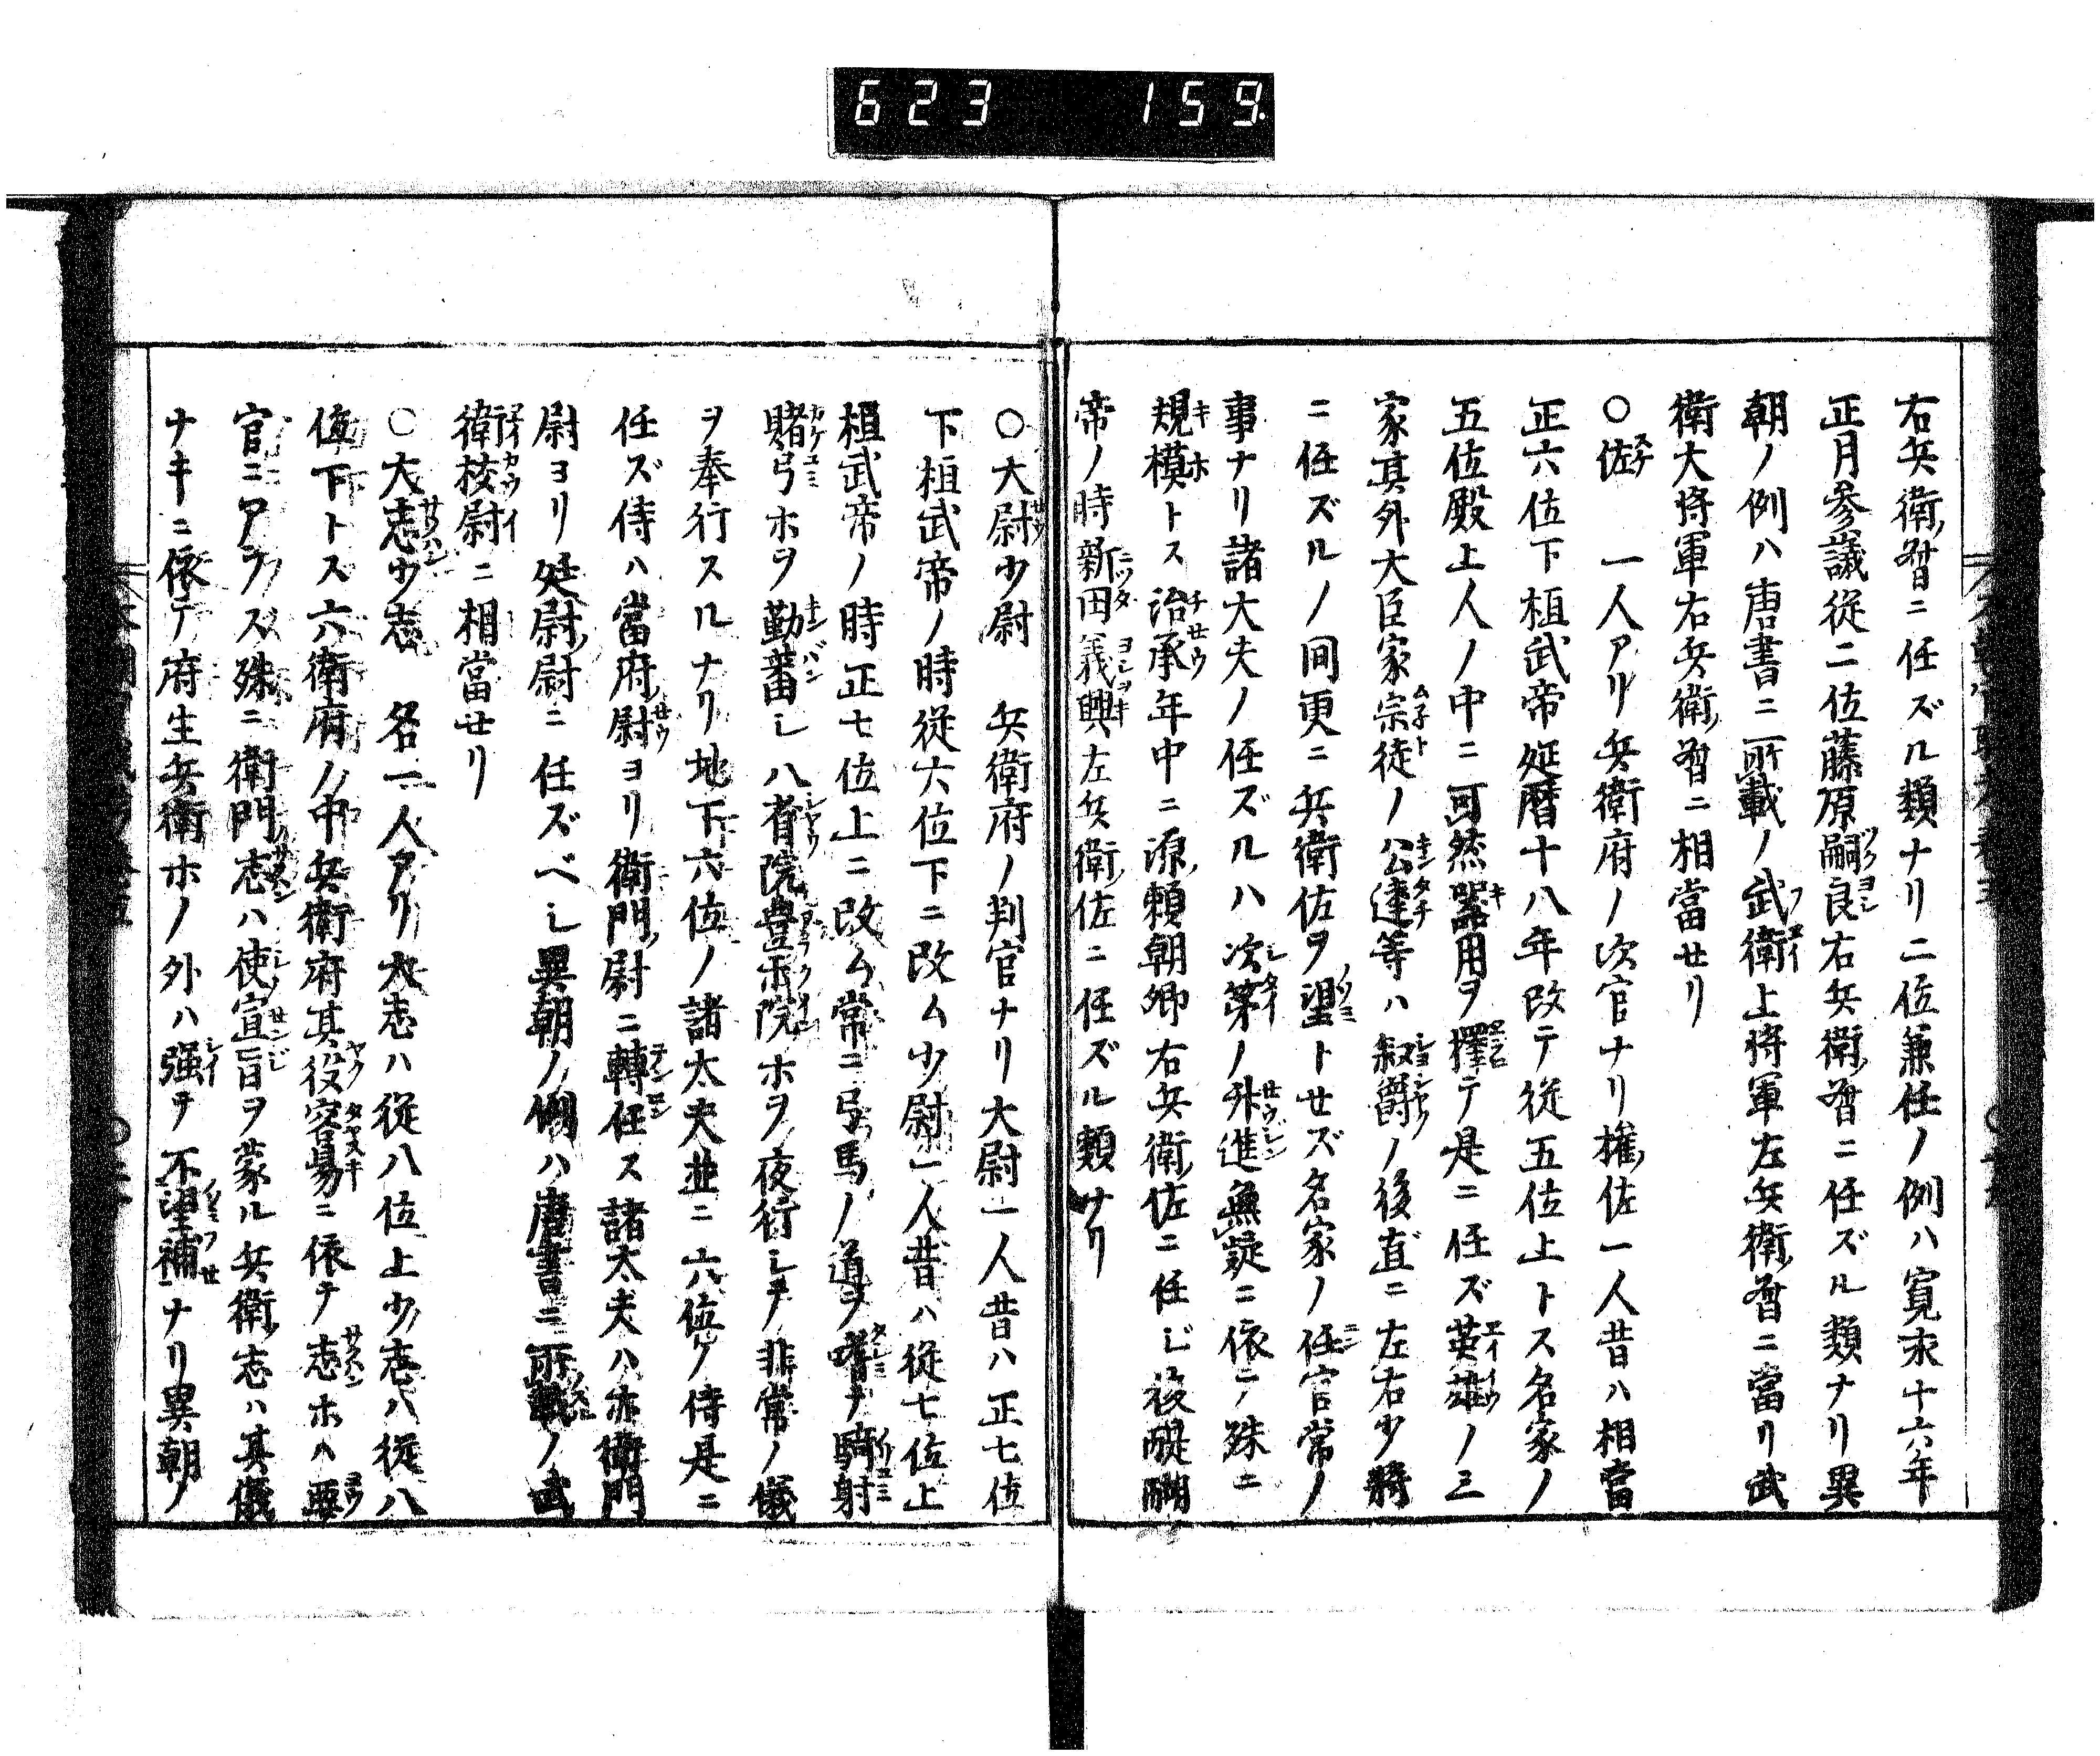 623 159
右兵衛督ニ任ズル類ナリ二位兼任ノ例ハ寛永十六年
正月参議従二位藤原嗣良右兵衛督ニ任ズル類ナリ異
朝ノ例ハ唐書ニ所載ノ武衛上将軍左兵衛督ニ當リ武
衛大将軍右兵衛督ニ相當セリ
○佐 一人アリ兵衛府ノ次官ナリ権佐一人昔ハ相當
正六位下桓武帝延暦十八年改テ従五位上トス名家ノ
五位殿上人ノ中ニ可然器用ヲ擇テ是ニ任ズ英雄ノ三
家其外大臣家宗徒ノ公達等ハ叙爵ノ後直ニ左右少将
ニ任ズルノ間更ニ兵衛佐ヲ望トセズ名家ノ任官常ノ
事ナリ諸大夫ノ任ズルハ次第ノ升進無疑ニ依テ殊ニ
規模トス治承年中ニ源頼朝卿右兵衛佐ニ任ジ後醍醐
帝ノ時新田義興左兵衛佐ニ任ズル類ナリ
○大尉少尉 兵衛府ノ判官ナリ大尉一人昔ハ正七位
下桓武帝ノ時従六位下ニ改ム少尉一人昔ハ従七位上
桓武帝ノ時正七位上ニ改ム常ニ弓馬ノ道ヲ嗜ナ騎射
賭弓ホヲ勤番シ八省院豊楽院ホヲ夜行シテ非常ノ儀
ヲ奉行スルナリ地下六位ノ諸太夫並ニ六位ノ侍是ニ
任ズ侍ハ當府尉ヨリ衛門尉ニ轉任ス諸太夫ハ亦衛門
尉ヨリ廷尉尉ニ任ズベシ異朝ノ例ハ唐書ニ所載ノ武
衛校尉ニ相當セリ
○大志少志 各一人アリ大志ハ従八位上少志ハ従八
位下トス六衛府ノ中兵衛府其役容易ニ依テ志ホハ要
官ニアラズ殊ニ衛門志ハ使宣旨ヲ蒙ル兵衛志ハ其儀
ナキニ依テ府生兵衛ホノ外ハ强テ不望補ナリ異朝ノ